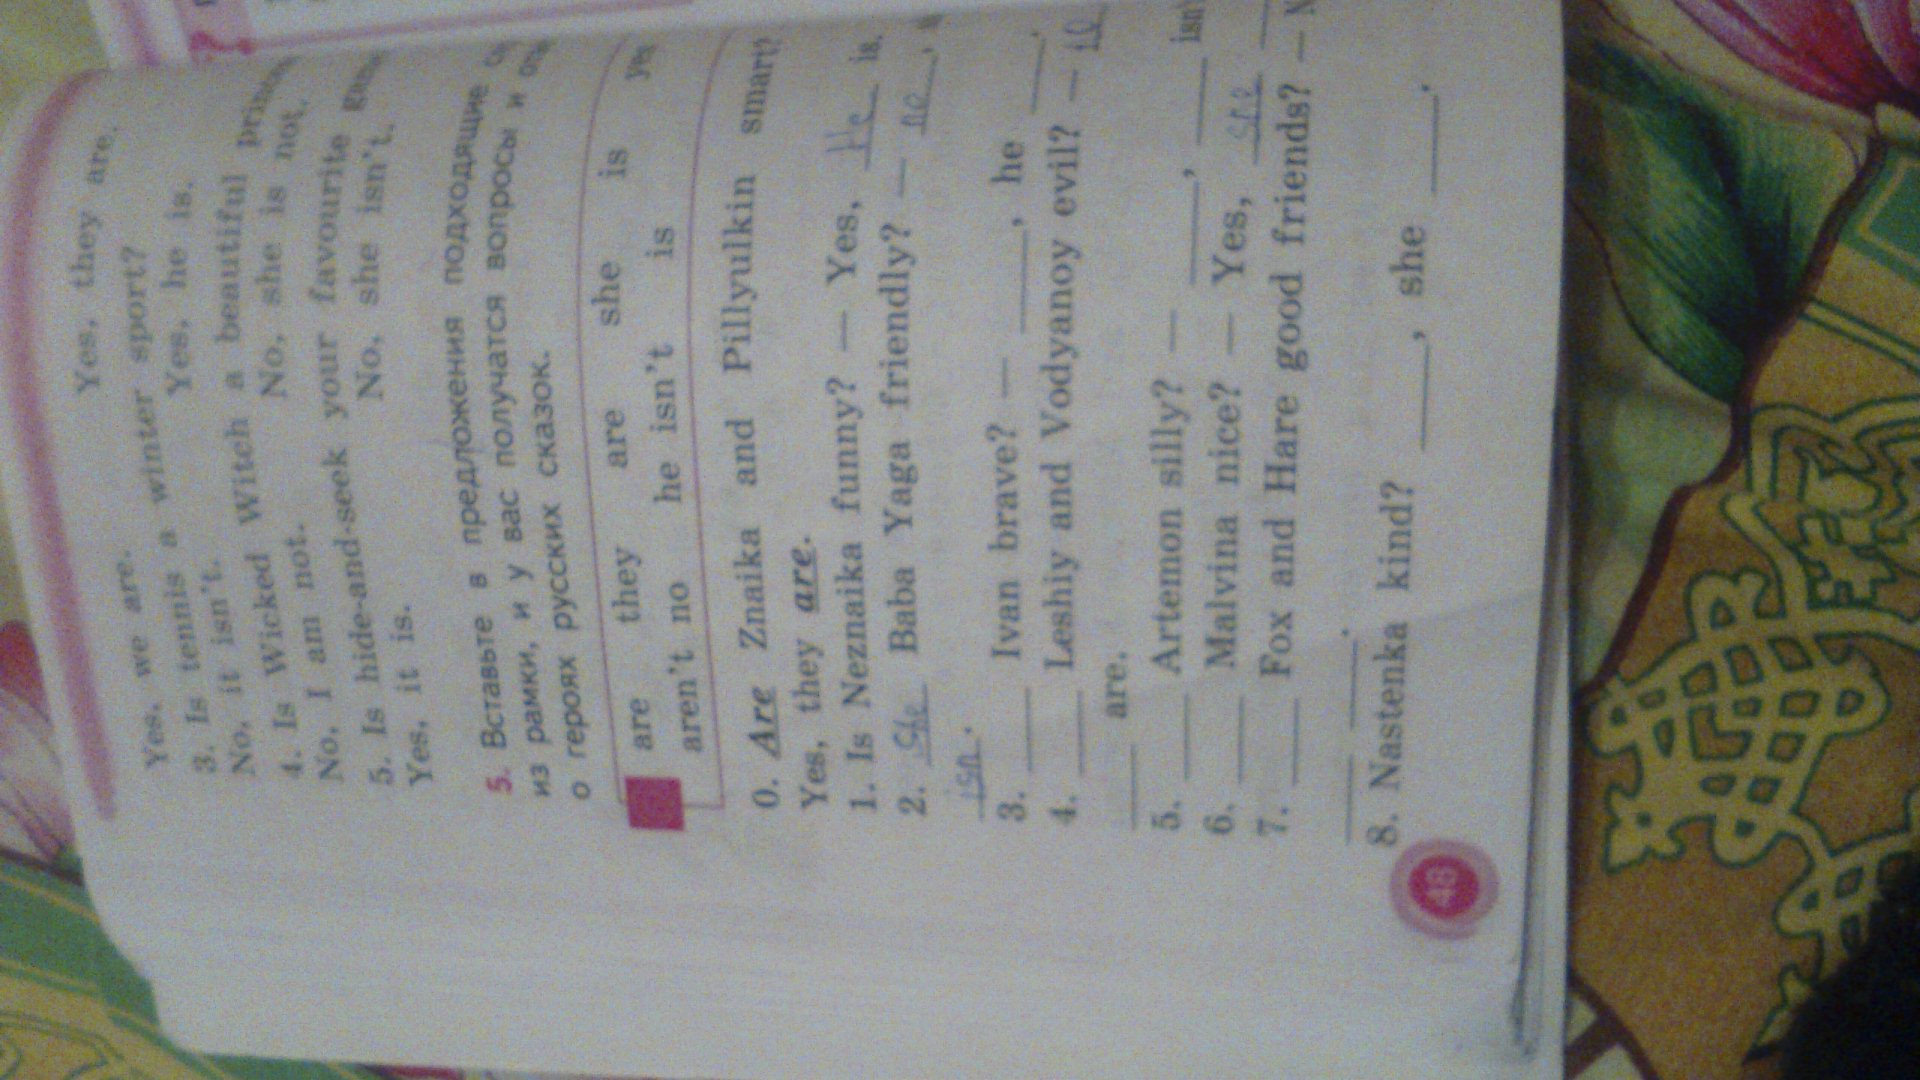 Yes, they are.
Yes, we are.
3. Is tennis a winter sport?
No, it isn't. Yes, he is.
4. Is Wicked Witch a beautiful
No, I am not. No, she is not.
5. Is hide-and-seek your favourite
Yes, it is. No, she isn't.
5. Вставьте в предложения подходящие
из рамки, и у вас получатся вопросы и
о героях русских сказок.
are they are she is
aren't no he isn't is
0. Are Znaika and Pillyulkin smart?
Yes, they are.
1. Is Neznaika funny? — Yes, He is.
2. She Baba Yaga friendly? — no,
isn.
3. ___ Ivan brave? — ___, he ___.
4. ___ Leshiy and Vodyanoy evil? —
___ are.
5. ___ Artemon silly? — ___, ___
6. ___ Malvina nice? — Yes, she ___
7. ___ Fox and Hare good friends? —
___ ___.
8. Nastenka kind? ___, she ___.
48